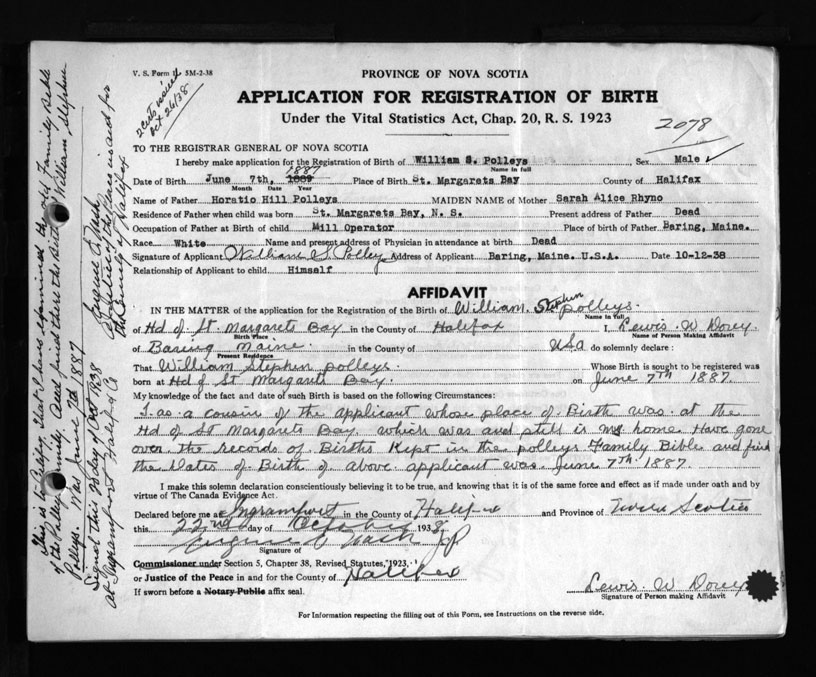 V. S. Form 11 5M-2-38
PROVINCE OF NOVA SCOTIA
APPLICATION FOR REGISTRATION OF BIRTH
Under the Vital Statistics Act, Chap. 20, R. S. 1923
Certf issued
Oct 26/38
2078
TO THE REGISTRAR GENERAL OF NOVA SCOTIA
I hereby make application for the Registration of Birth of William S. Polleys Sex Male ✓
Name in full
1887
Date of Birth June 7th, 1889 Place of Birth St. Margarets Bay County of Halifax
Month Date Year
Name of Father Horatio Hill Polleys MAIDEN NAME of Mother Sarah Alice Rhyno
Residence of Father when child was born St. Margarets Bay, N. S. Present address of Father Dead
Occupation of Father at Birth of child Mill Operator Place of birth of Father Baring, Maine.
Race White Name and present address of Physician in attendance at birth Dead
Signature of Applicant William S. Polley Address of Applicant Baring, Maine. U.S.A. Date 10-12-38
Relationship of Applicant to child Himself
AFFIDAVIT
IN THE MATTER of the application for the Registration of the Birth of William Stephen polleys.
Name in full
of Hd of St Margarets Bay in the County of Halifax I, Lewis W Dorey.
Birth Place Name of Person Making Affidavit
of Baring Maine. in the County of USA do solemnly declare:
Present Residence
That William Stephen polleys. Whose Birth is sought to be registered was
born at Hd of St Margarets Bay. on June 7th 1887.
My knowledge of the fact and date of such Birth is based on the following Circumstances:
I as a cousin of the applicant whose place of Birth was at the
Hd of St Margarets Bay which was and still is my home. Have gone
over the records of Births Kept in the polleys Family Bible and find
the Dates of Birth of above applicant was June 7th 1887.
I make this solemn declaration conscientiously believing it to be true, and knowing that it is of the same force and effect as if made under oath and by
virtue of The Canada Evidence Act.
Declared before me at Ingramport in the County of Halifax and Province of Nova Scotia
this 22nd day of October 1938
Eugene C Nash JP
Signature of
Commissioner under Section 5, Chapter 38, Revised Statutes, 1923,
or Justice of the Peace in and for the County of Halifax
If sworn before a Notary Public affix seal.
Lewis W Dorey
Signature of Person making Affidavit
For Information respecting the filling out of this Form, see Instructions on the reverse side.
This is to Certify that I have examined the old Family Bible
of the Polleys Family and find there the Birth of William Stephen
Polleys. Was June 7th 1887
Signed this 22 day of Oct 1938 Eugene C Nash
at Ingramport Halifax Co Justice of the Peace in and for
the County of Halifax